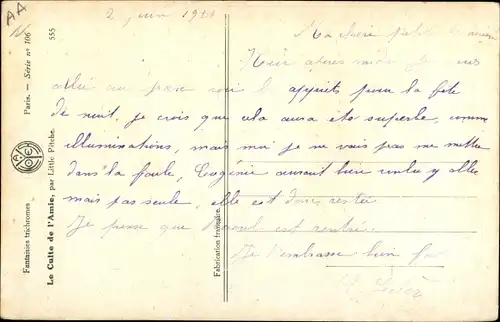 AA
2 juin 19
Ma chère petite
Hier après midi je
allée au parc voir l apprêts pour la fête
de nuit, je crois que cela aura été superbe, comme
illuminations, mais moi je ne vais pas me mettre
dans la foule, Eugénie aurait bien voulu y aller
mais pas seule, elle est donc restée
Je pense que est rentrée
Je t'embrasse bien fort
Fantaisies trichromes Paris. — Série n° 106
Le Culte de l'Amie, par Little Pitche. 555
Fabrication française.